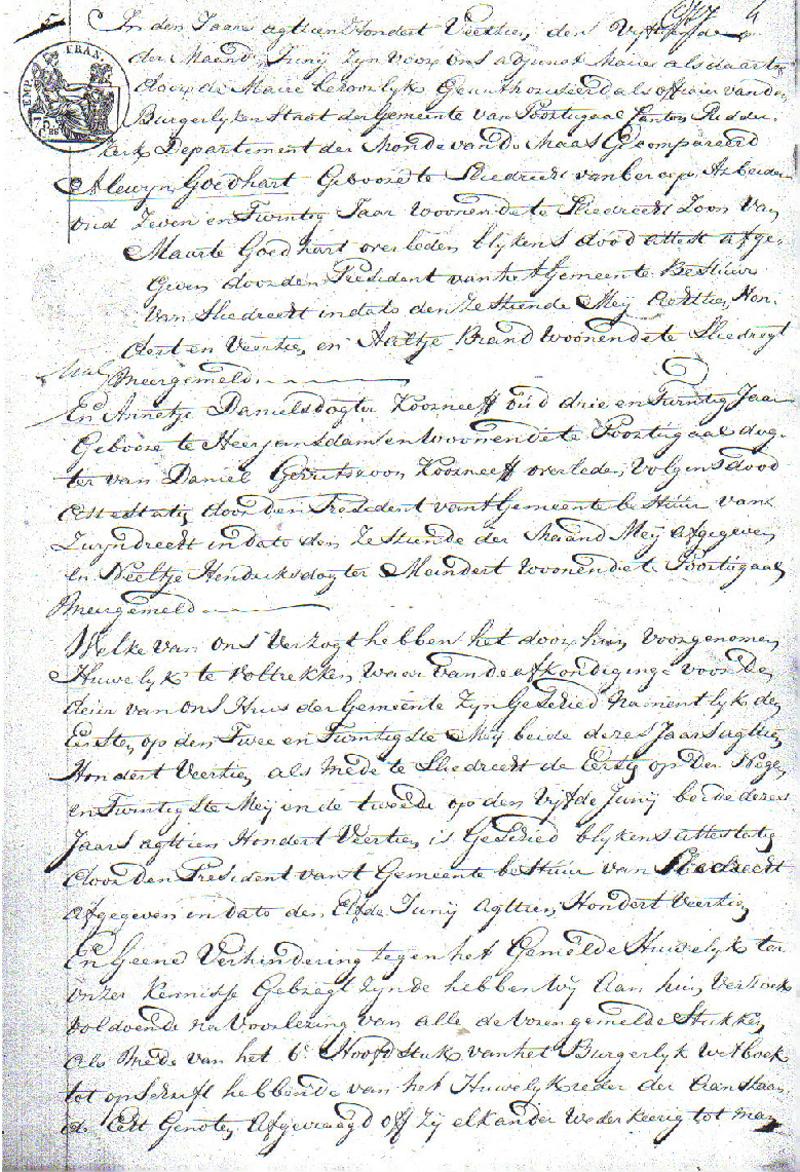 In den Jaare agttien Hondert Veertien, den Vijftiende
der Maand Junij zijn voor ons adjunct Maire als daartoe
door de Maire behoorlyk Geauthoriseerd als officier van den
Burgerlyken Staat der Gemeente van Poortugaal Canton Ridder-
EMP. FRAN.
kerk Departement der Monden van de Maas Gecompareerd
Alewyn Goedhart Gebooren te Sliedrecht van beroep Arbeider
oud Zeven en Twintig Jaar woonende te Sliedrecht Zoon van
Maarte Goedhart overleden blykens dood attest afge-
geven door den President van het Gemeente Bestuur
van Sliedrecht in dato den Zestiende Meij Agttien Hon-
dert en Veertien, en Aaltje Brand woonende te Sliedregt
Meergemeld
En Annetje Danielsdogter Koorneeff oud drie en Twintig Jaar
Gebooren te Heerjansdam en woonende te Poortugaal dog-
ter van Daniel Gerritszoon Koorneeff overleden, volgens dood
attestatie door den President van 't Gemeente bestuur van
Zwyndrecht in dato den Zestiende der Maand Meij afgegeven
en Neeltje Hendriksdogter Meindert woonende te Poortugaal
Meergemeld
Welke van ons verzogt hebben het door hun, voorgenomen
Huwelyk te voltrekken, waar van de afkondiginge voor de
deur van ons Huis der Gemeente zyn Geschied namentlyk de
Eerste, op den Twee en Twintigste Meij beide dezes Jaars agttien
Hondert Veertien, als mede te Sliedrecht de Eerste op den Negen
en Twintigste Meij en de tweede op den Vyfde Junij beide dezes
Jaars agttien Hondert Veertien, is Geschied blykens attestatie
door den President van 't Gemeente bestuur van Sliedrecht
afgegeven in dato den Elfde Junij Agttien Hondert Veertien
En Geene Verhindering tegen het Gemelde Huwelyk ter
onzer kennisse Gebragt zynde hebben wy aan hun, Verzoek
voldoende na Voorlezing van alle de voren gemelde Stukken
als mede van het 6e Hoofdstuk van het Burgerlyk wetboek
tot opschrift hebbende van het Huwelyk ieder der Aanstaan-
de Echt Genoten, Afgevraagd off zy elkander wederkeerig tot man